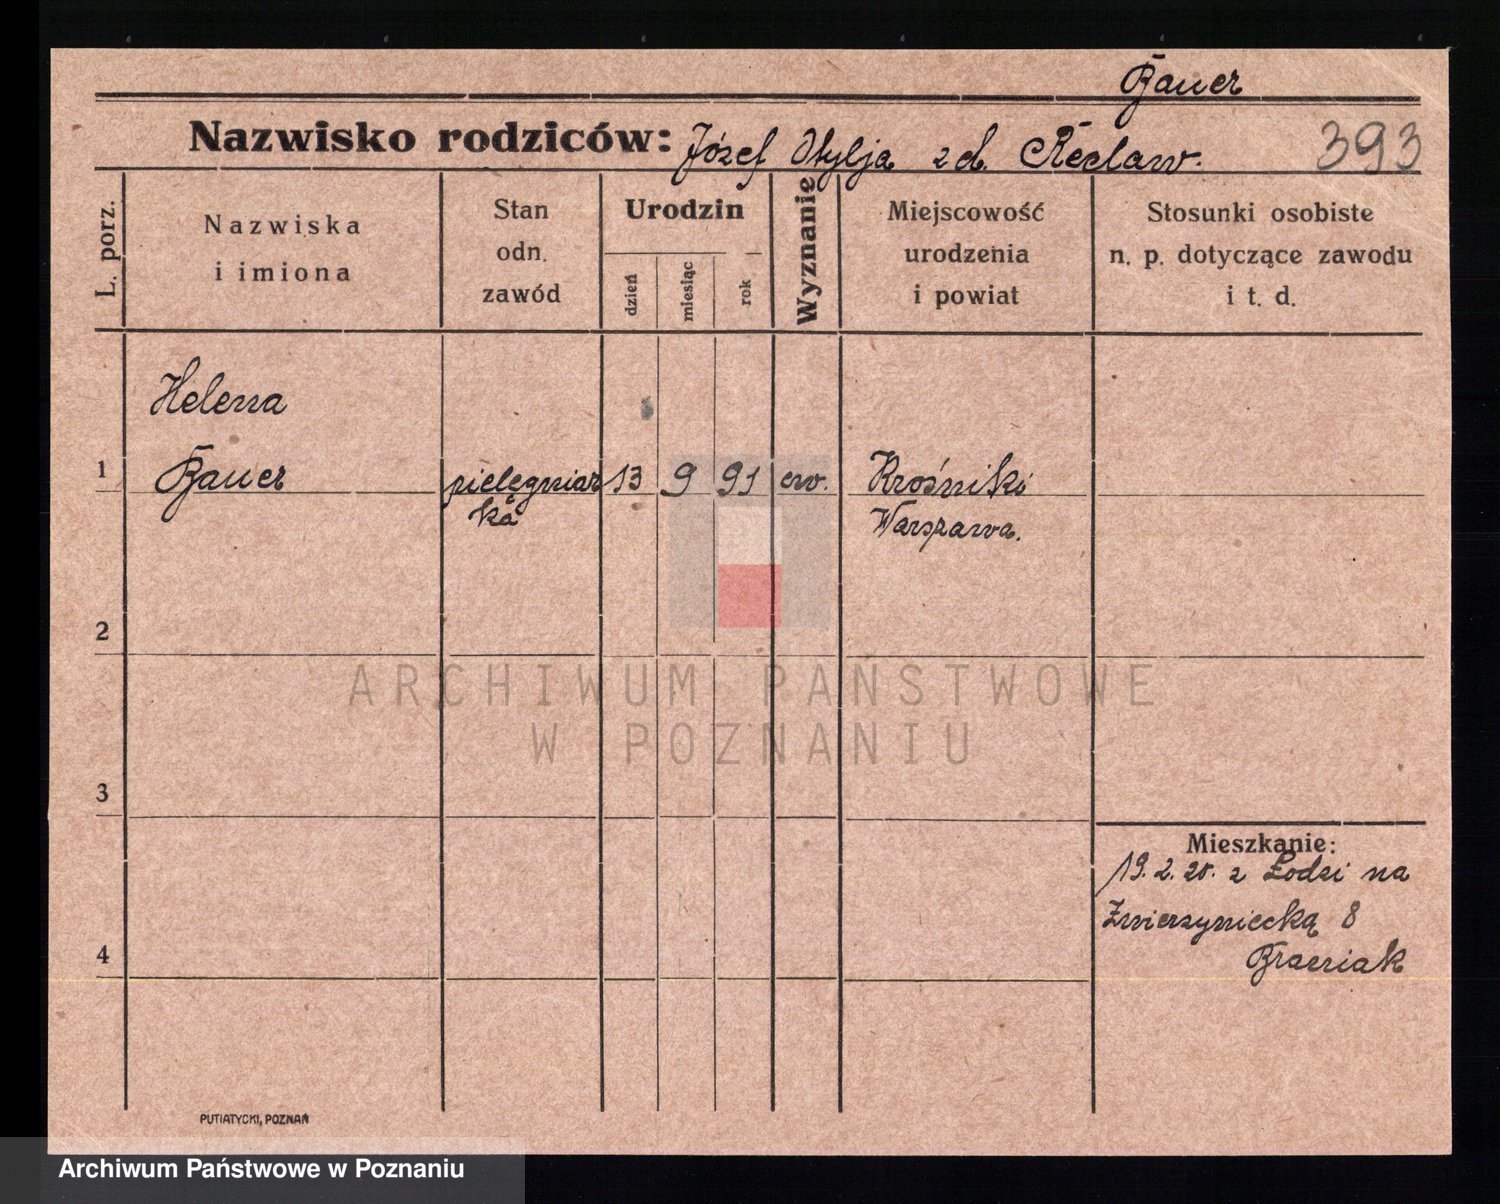 Bauer
Nazwisko rodziców: Józef Otylja z d. Reclaw. 393
L. porz.
Nazwiska
i imiona
Stan
odn.
zawód
Urodzin
dzień
miesiąc
rok
Wyznanie
Miejscowość
urodzenia
i powiat
Stosunki osobiste
n. p. dotyczące zawodu
i t. d.
Helena
1 Bauer pielęgniar 13 9 91 ew. Krośniki
ka Warszawa.
2
ARCHIWUM PAŃSTWOWE
W POZNANIU
3
Mieszkanie:
19. 2. 20. z Łodzi na
Zwierzyniecką 8
4
PUTIATYCKI, POZNAŃ
Archiwum Państwowe w Poznaniu